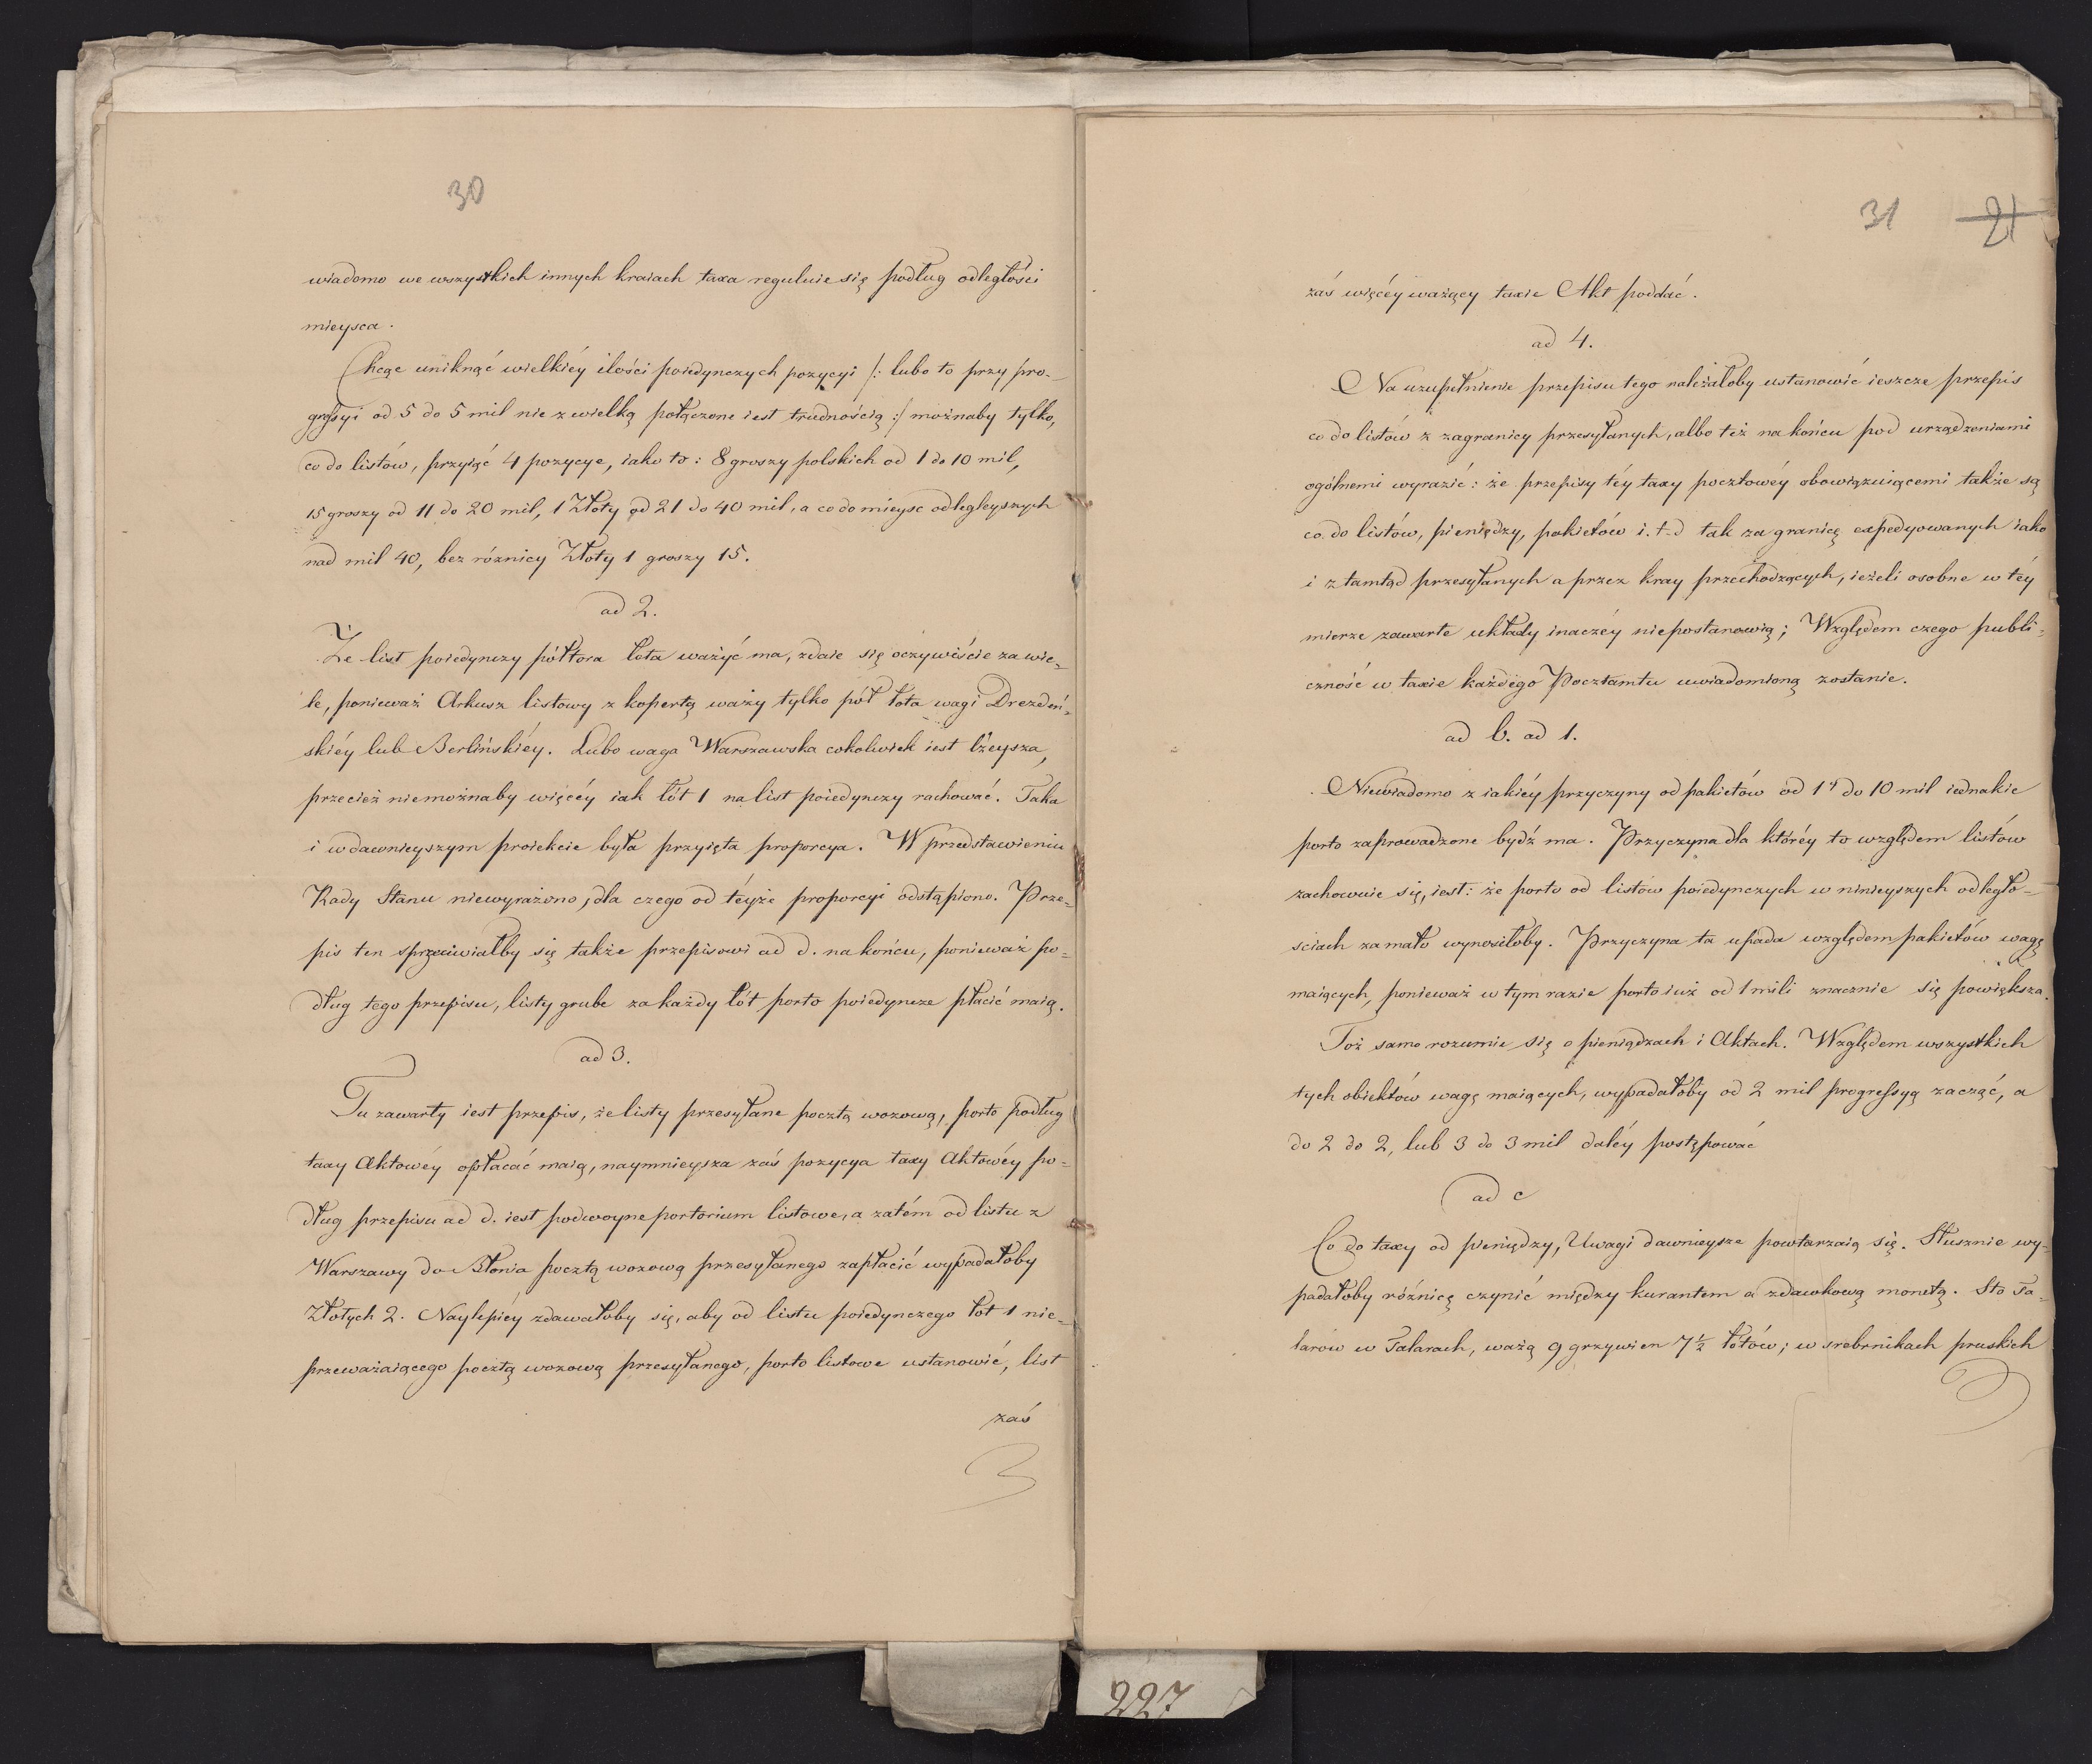 30
wiadomo we wszystkich innych kraiach taxa reguluie się podług odległości
mieysca.
Chcąc uniknąć wielkiéy ilości poiedynczych pozycyi /: lubo to przy pro-
gressyi od 5 do 5 mil nie z wielką połączone iest trudnością :/ możnaby tylko,
co do listów, przyiąć 4 pozycye, iako to: 8 groszy polskich od 1 do 10 mil,
15 groszy od 11 do 20 mil, 1 Złoty od 21 do 40 mil, a co do mieysc odległeyszych
nad mil 40, bez różnicy Złoty 1 groszy 15.
ad 2.
Że list poiedynczy półtora łóta ważyć ma, zdaie się oczywiście za wie-
le, ponieważ Arkusz listowy z kopertą waży tylko pół łóta wagi Drezdeń-
skiéy lub Berlińskiéy. Lubo waga Warszawska cokolwiek iest lżeysza,
przecież niemożnaby więcéy iak łót 1 na list poiedynczy rachować. Taka
i w dawnieyszym proiekcie była przyięta proporcya. W przedstawieniu
Rady Stanu niewyrażono, dla czego od téyże proporcyi odstąpiono. Prze-
pis ten sprzeciwiałby się także przepisowi ad d. na końcu, ponieważ po-
dług tego przepisu, listy grube za każdy łót porto poiedyncze płacić maią.
ad 3.
Tu zawarty iest przepis, że listy przesyłane pocztą wozową, porto podług
taxy Aktowéy opłacać maią, naymnieysza zaś pozycya taxy Aktowéy po-
dług przepisu ad d. iest podwoyne portorium listowe, a zatém od listu z
Warszawy do Błonia pocztą wozową przesyłanego zapłacić wypadałoby
Złotych 2. Naylepiéy zdawałoby się, aby od listu poiedynczego łot 1 nie-
przeważaiącego pocztą wozową przesyłanego, porto listowe ustanowić, list
zaś
31 21
zaś więcéy ważący taxie Akt poddać.
ad 4.
Na uzupełnienie przepisu tego należałoby ustanowić ieszcze przepis
co do listów z zagranicy przesyłanych, albo też na końcu pod urządzeniami
ogólnemi wyrazić: że przepisy téy taxy pocztowéy obowiązuiącemi także są
co do listów, pieniędzy, pakietów i. t. d tak za granicę expedyowanych iako
i z tamtąd przesyłanych a przez kray przechodzących, ieżeli osobne w téy
mierze zawarte układy inaczéy niepostanowią; Względem czego publi-
czność w taxie każdego Pocztamtu uwiadomioną zostanie.
ad b. ad 1.
Niewiadomo z iakiéy przyczyny od pakietów od 1 do 10 mil iednakie
porto zaprowadzone bydź ma. Przyczyna dla któréy to względem listów
zachowuie się, iest: że porto od listów poiedynczych w ninieyszych odległo-
sciach za mało wynosiłoby. Przyczyna ta upada względem pakietów wagę
maiących, ponieważ w tym razie porto iuż od 1 mili znacznie się powiększa.
Toż samo rozumie się o pieniądzach i Aktach. Względem wszystkich
tych obiektów wagę maiących, wypadałoby od 2 mil progressyą zacząć, a
do 2 do 2, lub 3 do 3 mil daléy postępować
ad c
Co do taxy od pieniędzy, Uwagi dawnieysze powtarzaią się. Słusznie wy-
padałoby różnicę czynić między kurantem a zdawkową monetą. Sto Ta-
larów w Talarach, ważą 9 grzywien 7 1/2 łótów; w srebrnikach pruskich
227